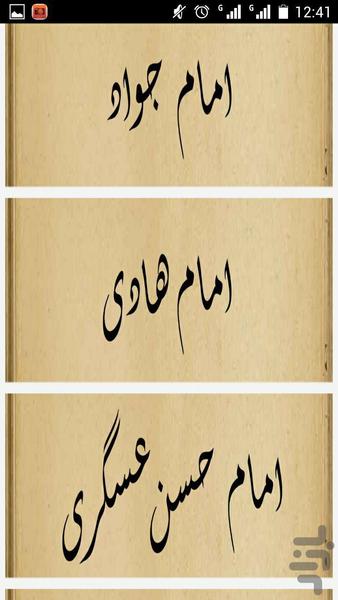 12:41
امام جواد
امام هادی
امام حسن عسگری
بازار